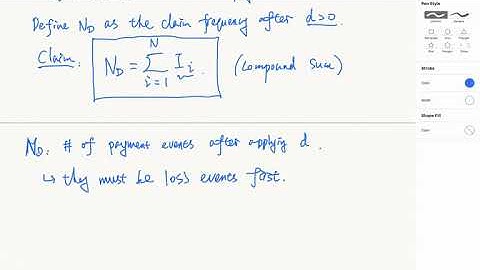 Define N_D as the claim frequency after d>0.
Claim: N_D = \sum_{i=1}^{N} I_i. (Compound sum)
N_D: # of payment events after applying d.
↳ they must be loss events first.
Pen Style
Stroke
Color
Width
Shape Fill
Color